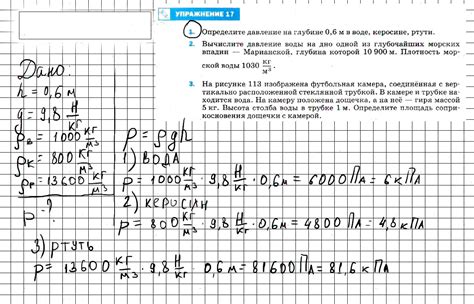 УПРАЖНЕНИЕ 17
1. Определите давление на глубине 0,6 м в воде, керосине, ртути.
2. Вычислите давление воды на дно одной из глубочайших морских
впадин — Марианской, глубина которой 10 900 м. Плотность мор-
ской воды 1030 кг/м³.
3. На рисунке 113 изображена футбольная камера, соединённая с вер-
тикально расположенной стеклянной трубкой. В камере и трубке на-
ходится вода. На камеру положена дощечка, а на неё — гиря массой
5 кг. Высота столба воды в трубке 1 м. Определите площадь сопри-
косновения дощечки с камерой.
Дано:
h = 0,6 м
g = 9,8 Н/кг
ρв = 1000 кг/м³
ρк = 800 кг/м³
ρр = 13600 кг/м³
P - ?
P = ρgh
1) ВОДА
P = 1000 кг/м³ · 9,8 Н/кг · 0,6 м = 6000 Па = 6 кПа
2) КЕРОСИН
P = 800 кг/м³ · 9,8 Н/кг · 0,6 м = 4800 Па = 4,8 кПа
3) РТУТЬ
P = 13600 кг/м³ · 9,8 Н/кг · 0,6 м = 81600 Па = 81,6 кПа